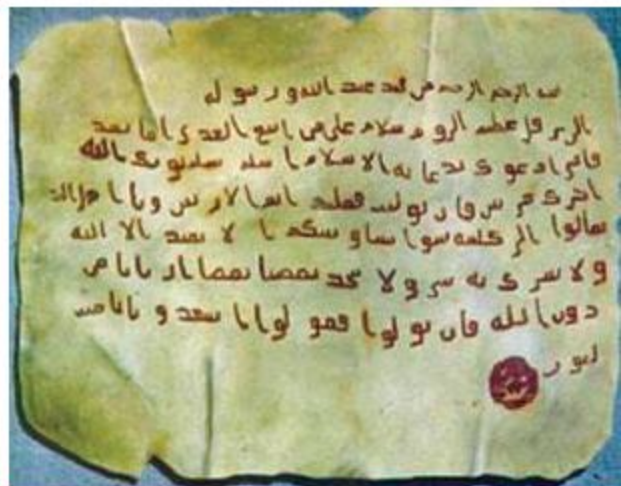 بسم الرحمن الرحيم من محمد عبد الله ورسوله
الى هرقل عظيم الروم سلام على من اتبع الهدى اما بعد
فاني ادعوك بدعاية الاسلام اسلم تسلم يوتك الله
اجرك مرتين فان توليت فعليك اثم الاريسين ويا اهل
تعالوا الى كلمة سوا بيننا وبينكم ا لا نعبد الا الله
ولا نشرك به شي ولا يتخذ بعضنا بعضا اربابا من
دون الله فان تولوا فقولوا اشهدوا بانا